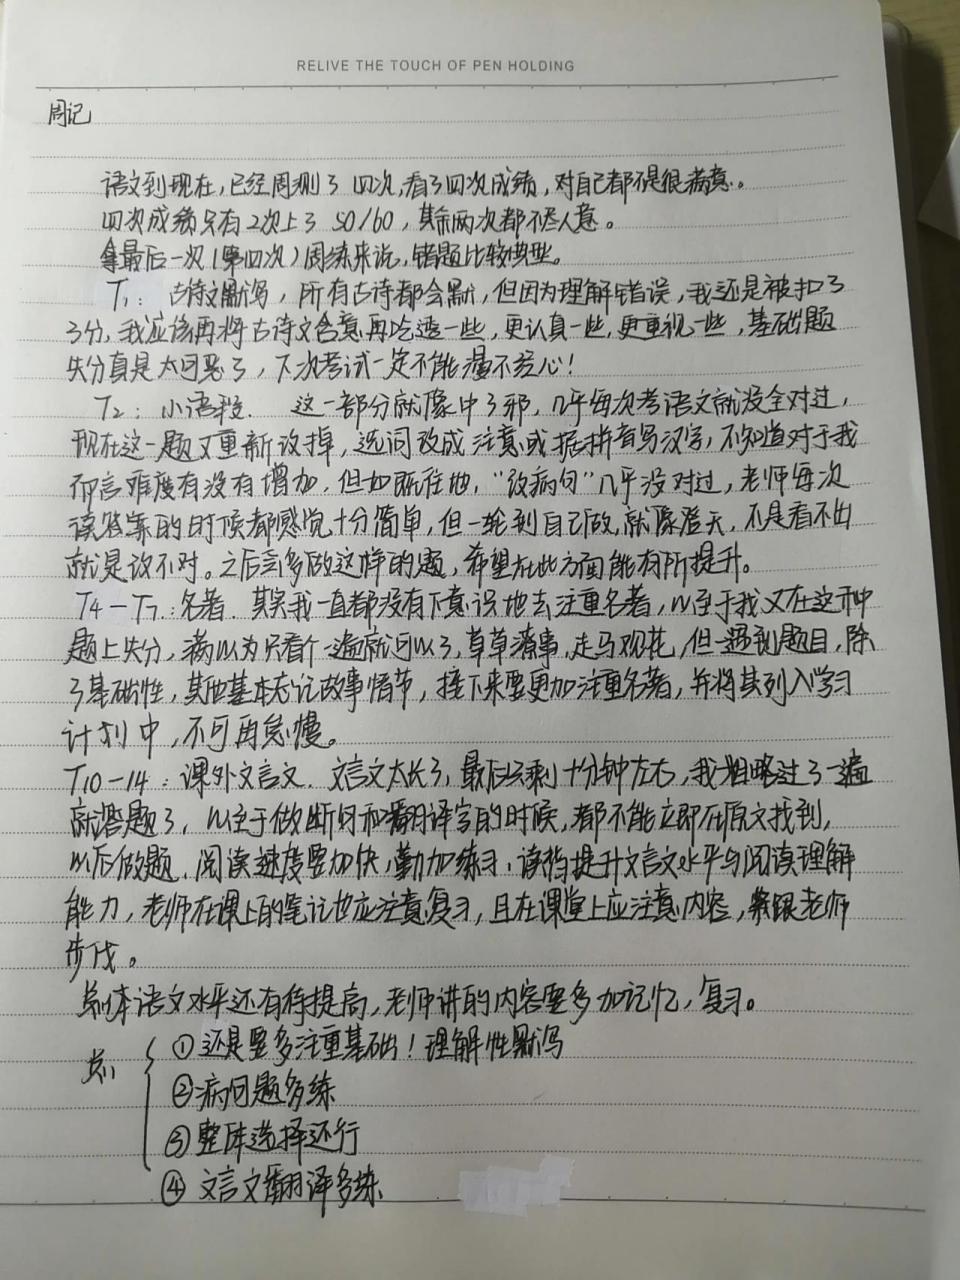 RELIVE THE TOUCH OF PEN HOLDING
周记
语文到现在,已经周测了四次,看了四次成绩,对自己都不是很满意。
四次成绩只有2次上了50/60,其余两次都不尽人意。
拿最后一次(第四次)周练来说,错题比较典型。
T1:古诗文默写,所有古诗都会默,但因为理解错误,我还是被扣了
3分,我应该再将古诗文含意再吃透一些,更认真一些,更重视一些,基础题
失分真是太可恶了,下次考试一定不能漫不经心!
T2:小语段. 这一部分就像中了邪,几乎每次考语文就没全对过,
现在这一题又重新改掉,选词改成注意或据拼音写汉字,不知道对于我
而言难度有没有增加,但如既往地,“改病句”几乎没对过,老师每次
读答案的时候都感觉十分简单,但一轮到自己做,就像登天,不是看不出
就是改不对。之后会多做这样的题,希望在此方面能有所提升。
T4-T7:名著.其实我一直都没有下意识地去注重名著,以至于我又在这种
题上失分,满以为只看个一遍就可以了,草草凑事,走马观花,但一遇到题目,除
了基础性,其他基本忘记故事情节,接下来要更加注重名著,并将其列入学习
计划中,不可再怠慢。
T10-14:课外文言文.文言文太长了,最后只剩十分钟左右,我粗略过了一遍
就答题了,以至于做断句和翻译字的时候,都不能立即在原文找到,
以后做题,阅读速度要加快,勤加练习,读档提升文言文水平与阅读理解
能力,老师在课上的笔记也应注意复习,且在课堂上应注意内容,紧跟老师
步伐。
总体语文水平还有待提高,老师讲的内容要多加记忆,复习。
总: ①还是要多注重基础!理解性默写
②病句题多练
③整体选择还行
④文言文翻译多练